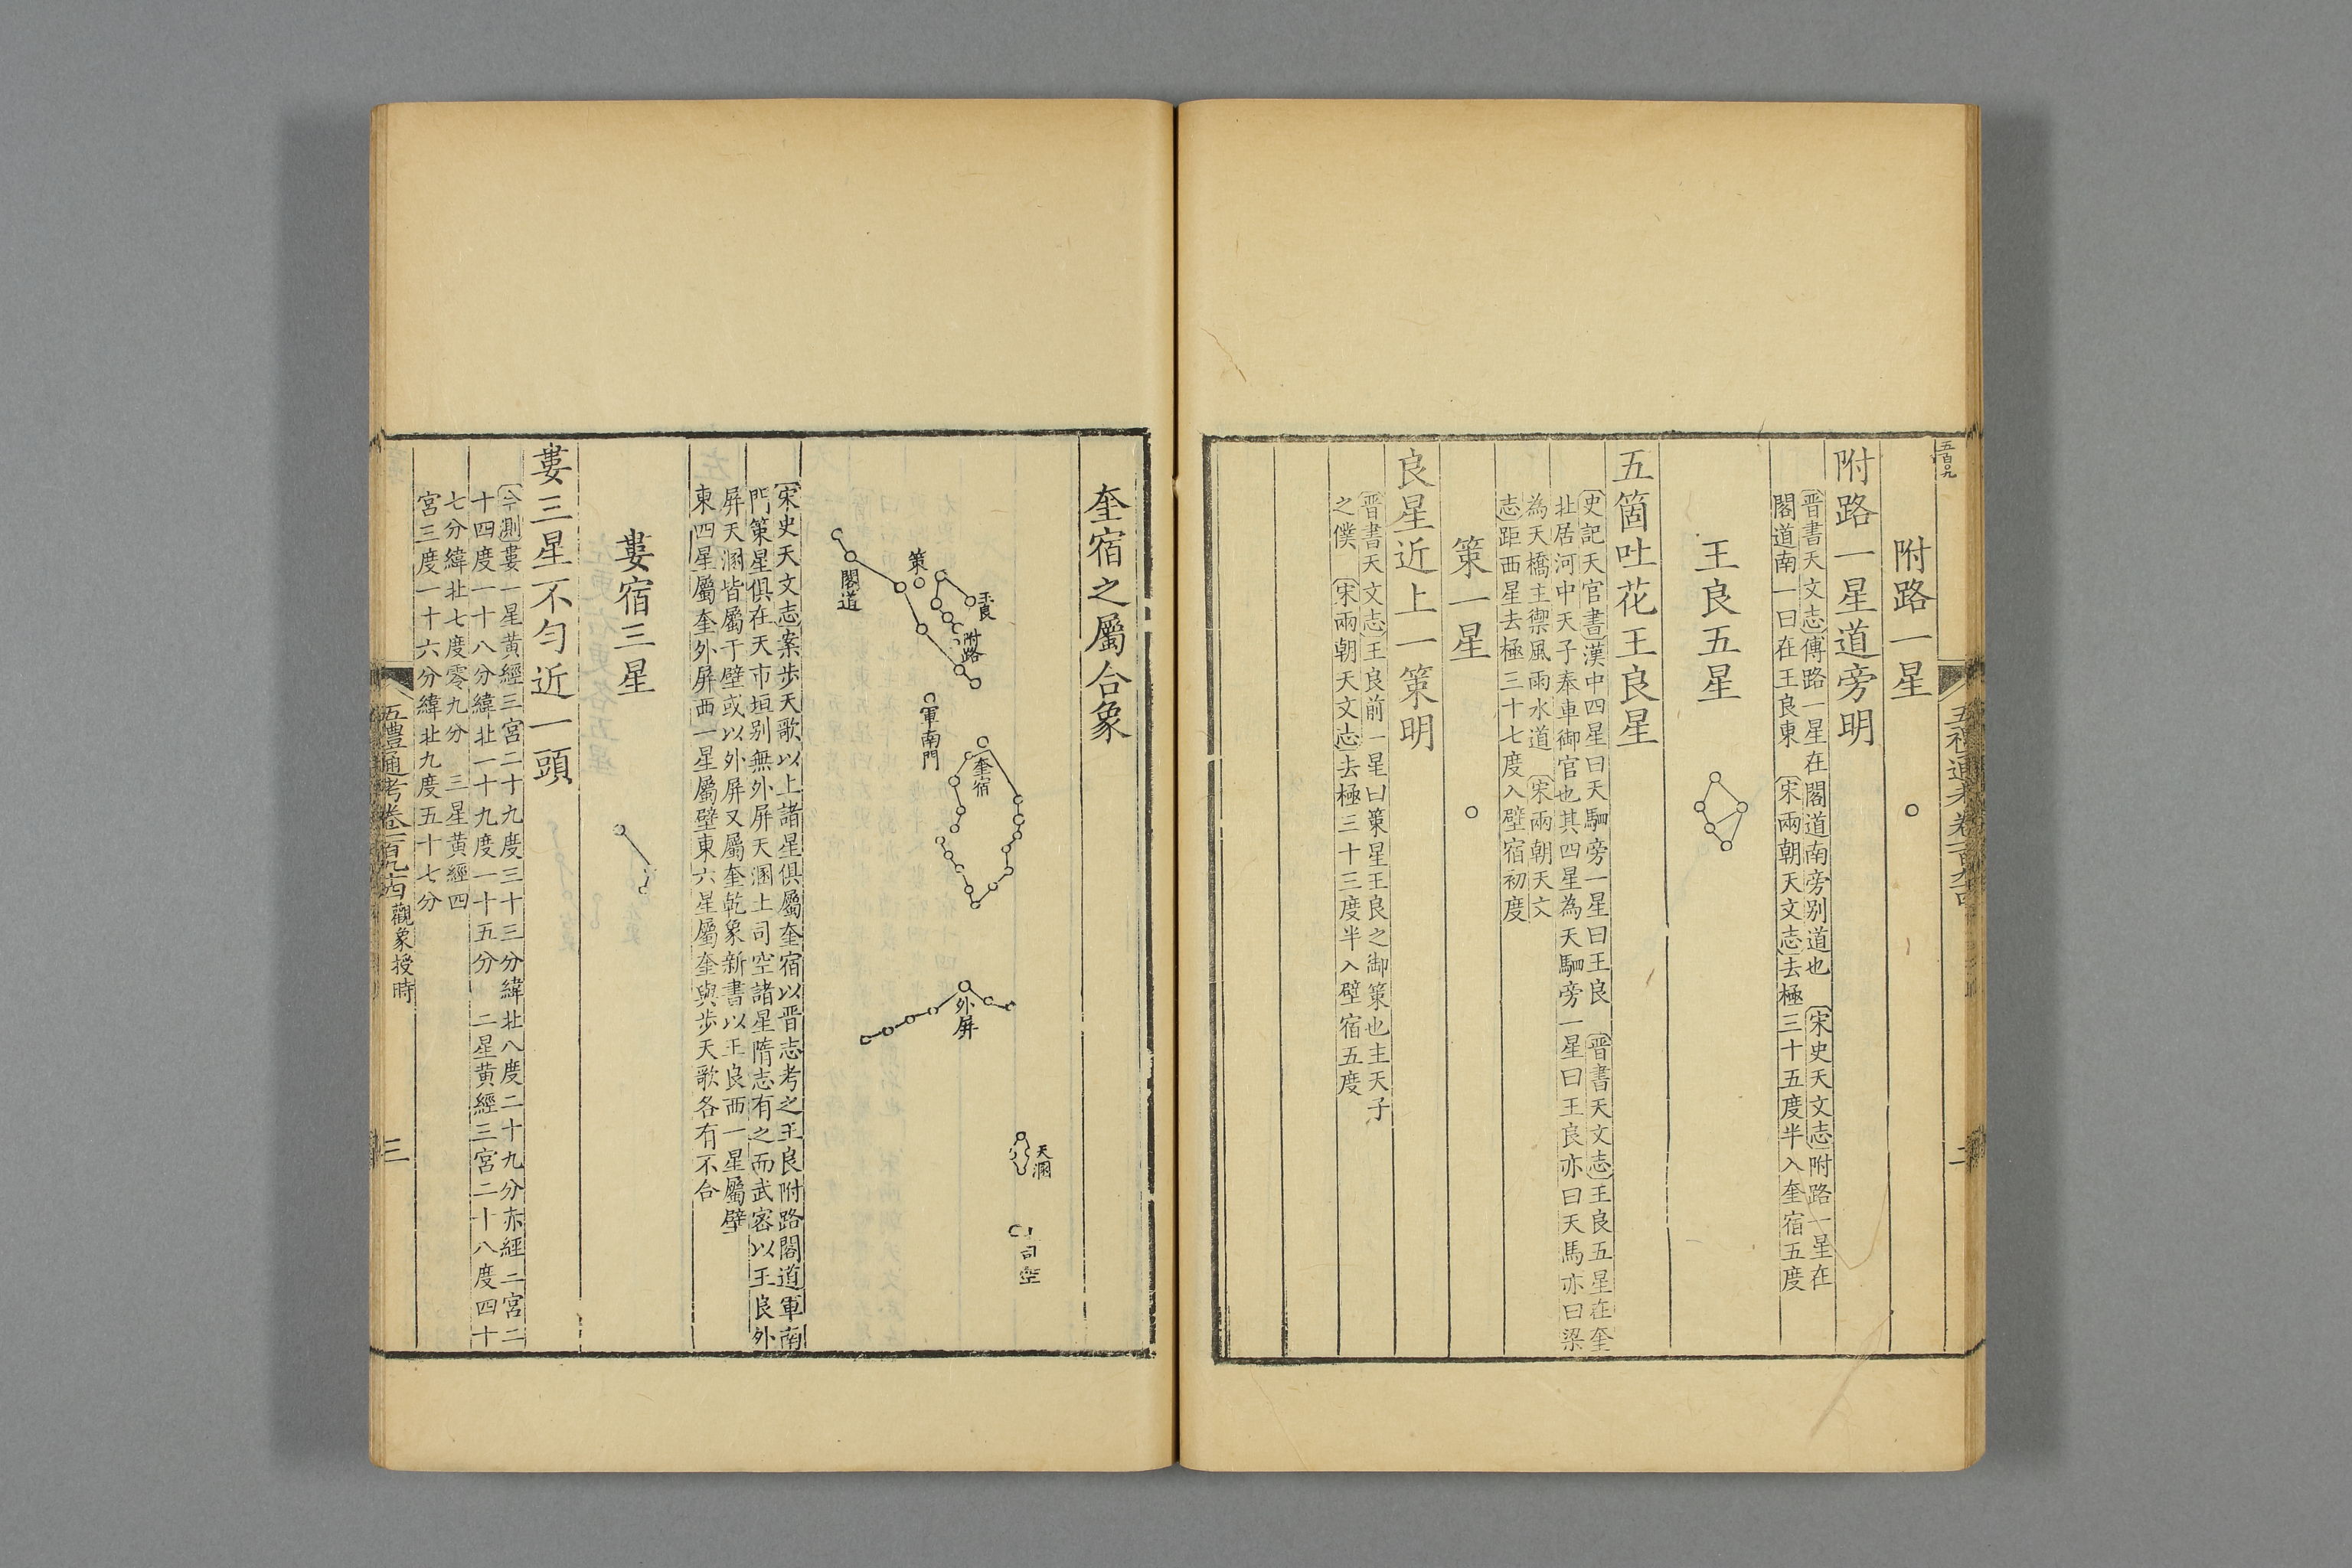 五百〇九
附路一星
附路一星道旁明
晋書天文志傅路一星在閣道南旁别道也 宋史天文志附路一星在
閣道南一曰在王良東 宋兩朝天文志去極三十五度半入奎宿五度
王良五星
五箇吐花王良星
史記天官書漢中四星曰天駟旁一星曰王良 晋書天文志王良五星在奎
北居河中天子奉車御官也其四星為天駟旁一星曰王良亦曰天馬亦曰梁
為天橋主禦風雨水道 宋兩朝天文
志距西星去極三十七度入壁宿初度
策一星
良星近上一策明
晋書天文志王良前一星曰策星王良之御策也主天子
之僕 宋兩朝天文志去極三十三度半入壁宿五度
奎宿之屬合象
王良
策
附路
閣道
軍南門
奎宿
外屏
天溷
司空
宋史天文志案步天歌以上諸星俱屬奎宿以晋志考之王良附路閣道軍南
門策星俱在天市垣别無外屏天溷土司空諸星隋志有之而武宻以王良外
屏天溷皆屬于壁或以外屏又屬奎乾象新書以王良西一星屬壁
東四星屬奎外屏西一星屬壁東六星屬奎與步天歌各有不合
婁宿三星
婁三星不匀近一頭
今測婁一星黄經三宮二十九度三十三分緯北八度二十九分赤經二宮二
十四度一十八分緯北一十九度一十五分 二星黄經三宮二十八度四十
七分緯北七度零九分 三星黄經四
宮三度一十六分緯北九度五十七分
五禮通考卷一百九十四 觀象授時
三